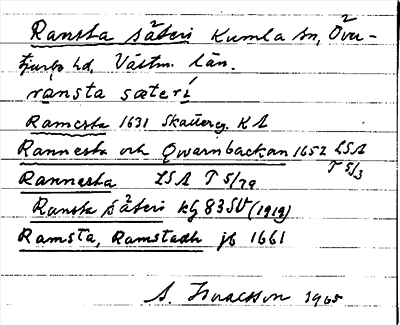 Ransta säteri Kumla sn, Över-
tjurbo hd, Västm. län.
ransta sæterí
Ramersta 1631 Skattereg. KA
Rannesta och Qwarnbackan 1652 LSA
T 5/3
Rannesta LSA T 5/79
Ransta säteri kg 83SV (1919)
Ramsta, Ramstadh jb 1661
S. Isaacsson 1965